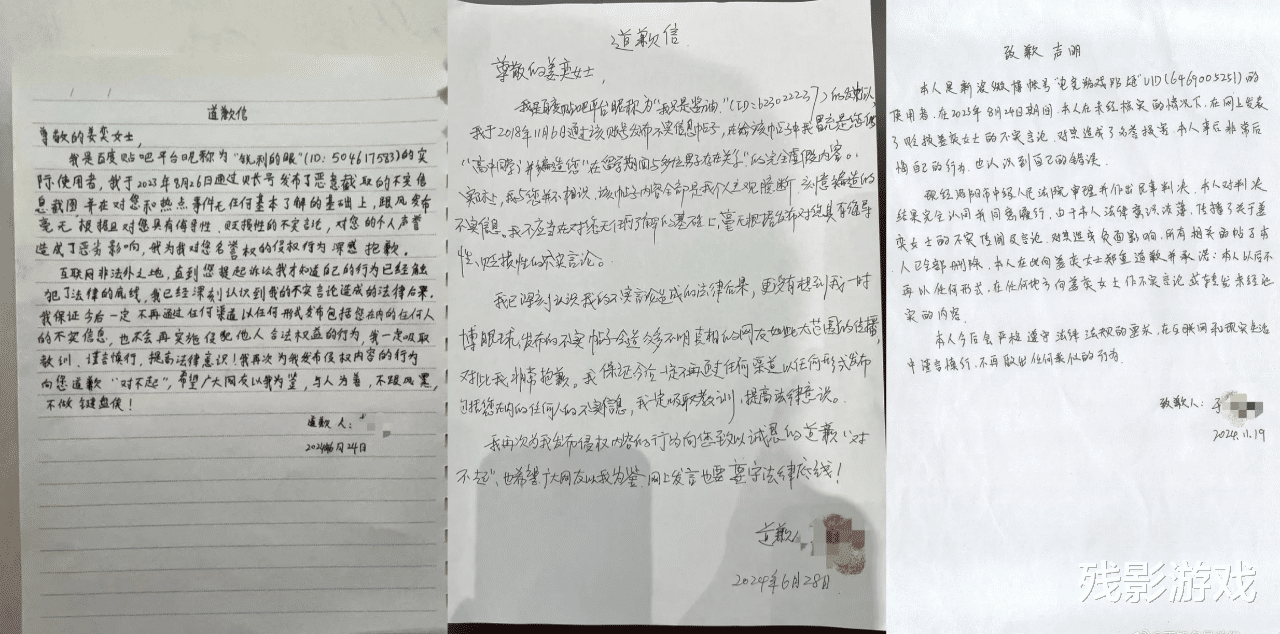 道歉信
尊敬的姜奕女士，
我是百度贴吧平台昵称为“锐利的眼”(ID: 504617583)的实
际使用者，我于2023年8月26日通过贝长号发布了恶意截取的不实信
息截图并在对您和热点事件无任何基本了解的基础上，跟风发布
毫无根据且对您具有侮辱性、贬损性的不实言论，对您的个人声誉
造成了恶劣影响，我为我对您名誉权的侵权行为深感抱歉。
互联网非法外之地，直到您提起诉讼我才知道自己的行为已经触
犯了法律的底线，我已经深刻认识到我的不实言论造成的法律后果。
我保证今后一定不再通过任何渠道以任何形式发布包括您在内的任何人
的不实信息，也不会再实施侵犯他人合法权益的行为，我一定吸取
教训、谨言慎行，提高法律意识！我再次为我发布侵权内容的行为
向您道歉“对不起”，希望广大网友以我为鉴，与人为善，不跟风黑，
不做键盘侠！
道歉人：
2024年6月24日
道歉信
尊敬的姜奕女士，
我是百度贴吧平台昵称为“我只是酱油”(ID:623022237)的
我于2018年11月6日通过该账号发布不实信息帖子，在给该帖子中我冒充是您
“高中同学”并编造您“在留学期间与多位男子存在关系”的完全虚假内容。
实际上，我与您并不相识，该帖子内容全部是我个人主观臆断、刻意编造的
不实信息。我不应当在对您无任何了解的基础上，毫无根据发布对您具有侮辱
性、贬损性的不实言论。
我已深刻认识我的不实言论造成的法律后果，更没有想到我一时
博眼球发布的不实帖子会造众多不明真相的网友如此大范围的传播，
对比我非常抱歉，我保证今后一定不再通过任何渠道以任何形式发布
包括您在内的任何人的不实信息，我一定吸取教训，提高法律意识。
我再次为我发布侵权内容的行为向您致以诚恳的道歉“对
不起”，也希望广大网友以我为鉴，网上发言也要遵守法律底线！
道歉人
2024年6月28日
致歉声明
本人是新浪微博帐号“电竞游戏陪练”UID(6469005251)的
使用者，在2023年8月24日期间，本人在未经核实的情况下，在网上发表
了诋毁姜奕女士的不实言论，对其造成了名誉损害，本人事后非常后
悔自己的行为，也认识到自己的错误。
现经沈阳市中级人民法院审理并作出民事判决，本人对判决
结果完全认同并同意履行，由于本人法律意识淡薄，传播了关于姜
奕女士的不实传闻及言论，对其造成负面影响，所有相关的帖子本
人已全部删除，本人在此向姜奕女士郑重道歉并承诺：本人以后不
再以任何形式，在任何地方向姜奕女士作不实言论或转发未经证
实的内容。
本人今后会严格遵守法律法规的要求，在互联网和现实生活
中谨言慎行，不再做出任何类似的行为。
致歉人：
2024.11.19
残影游戏